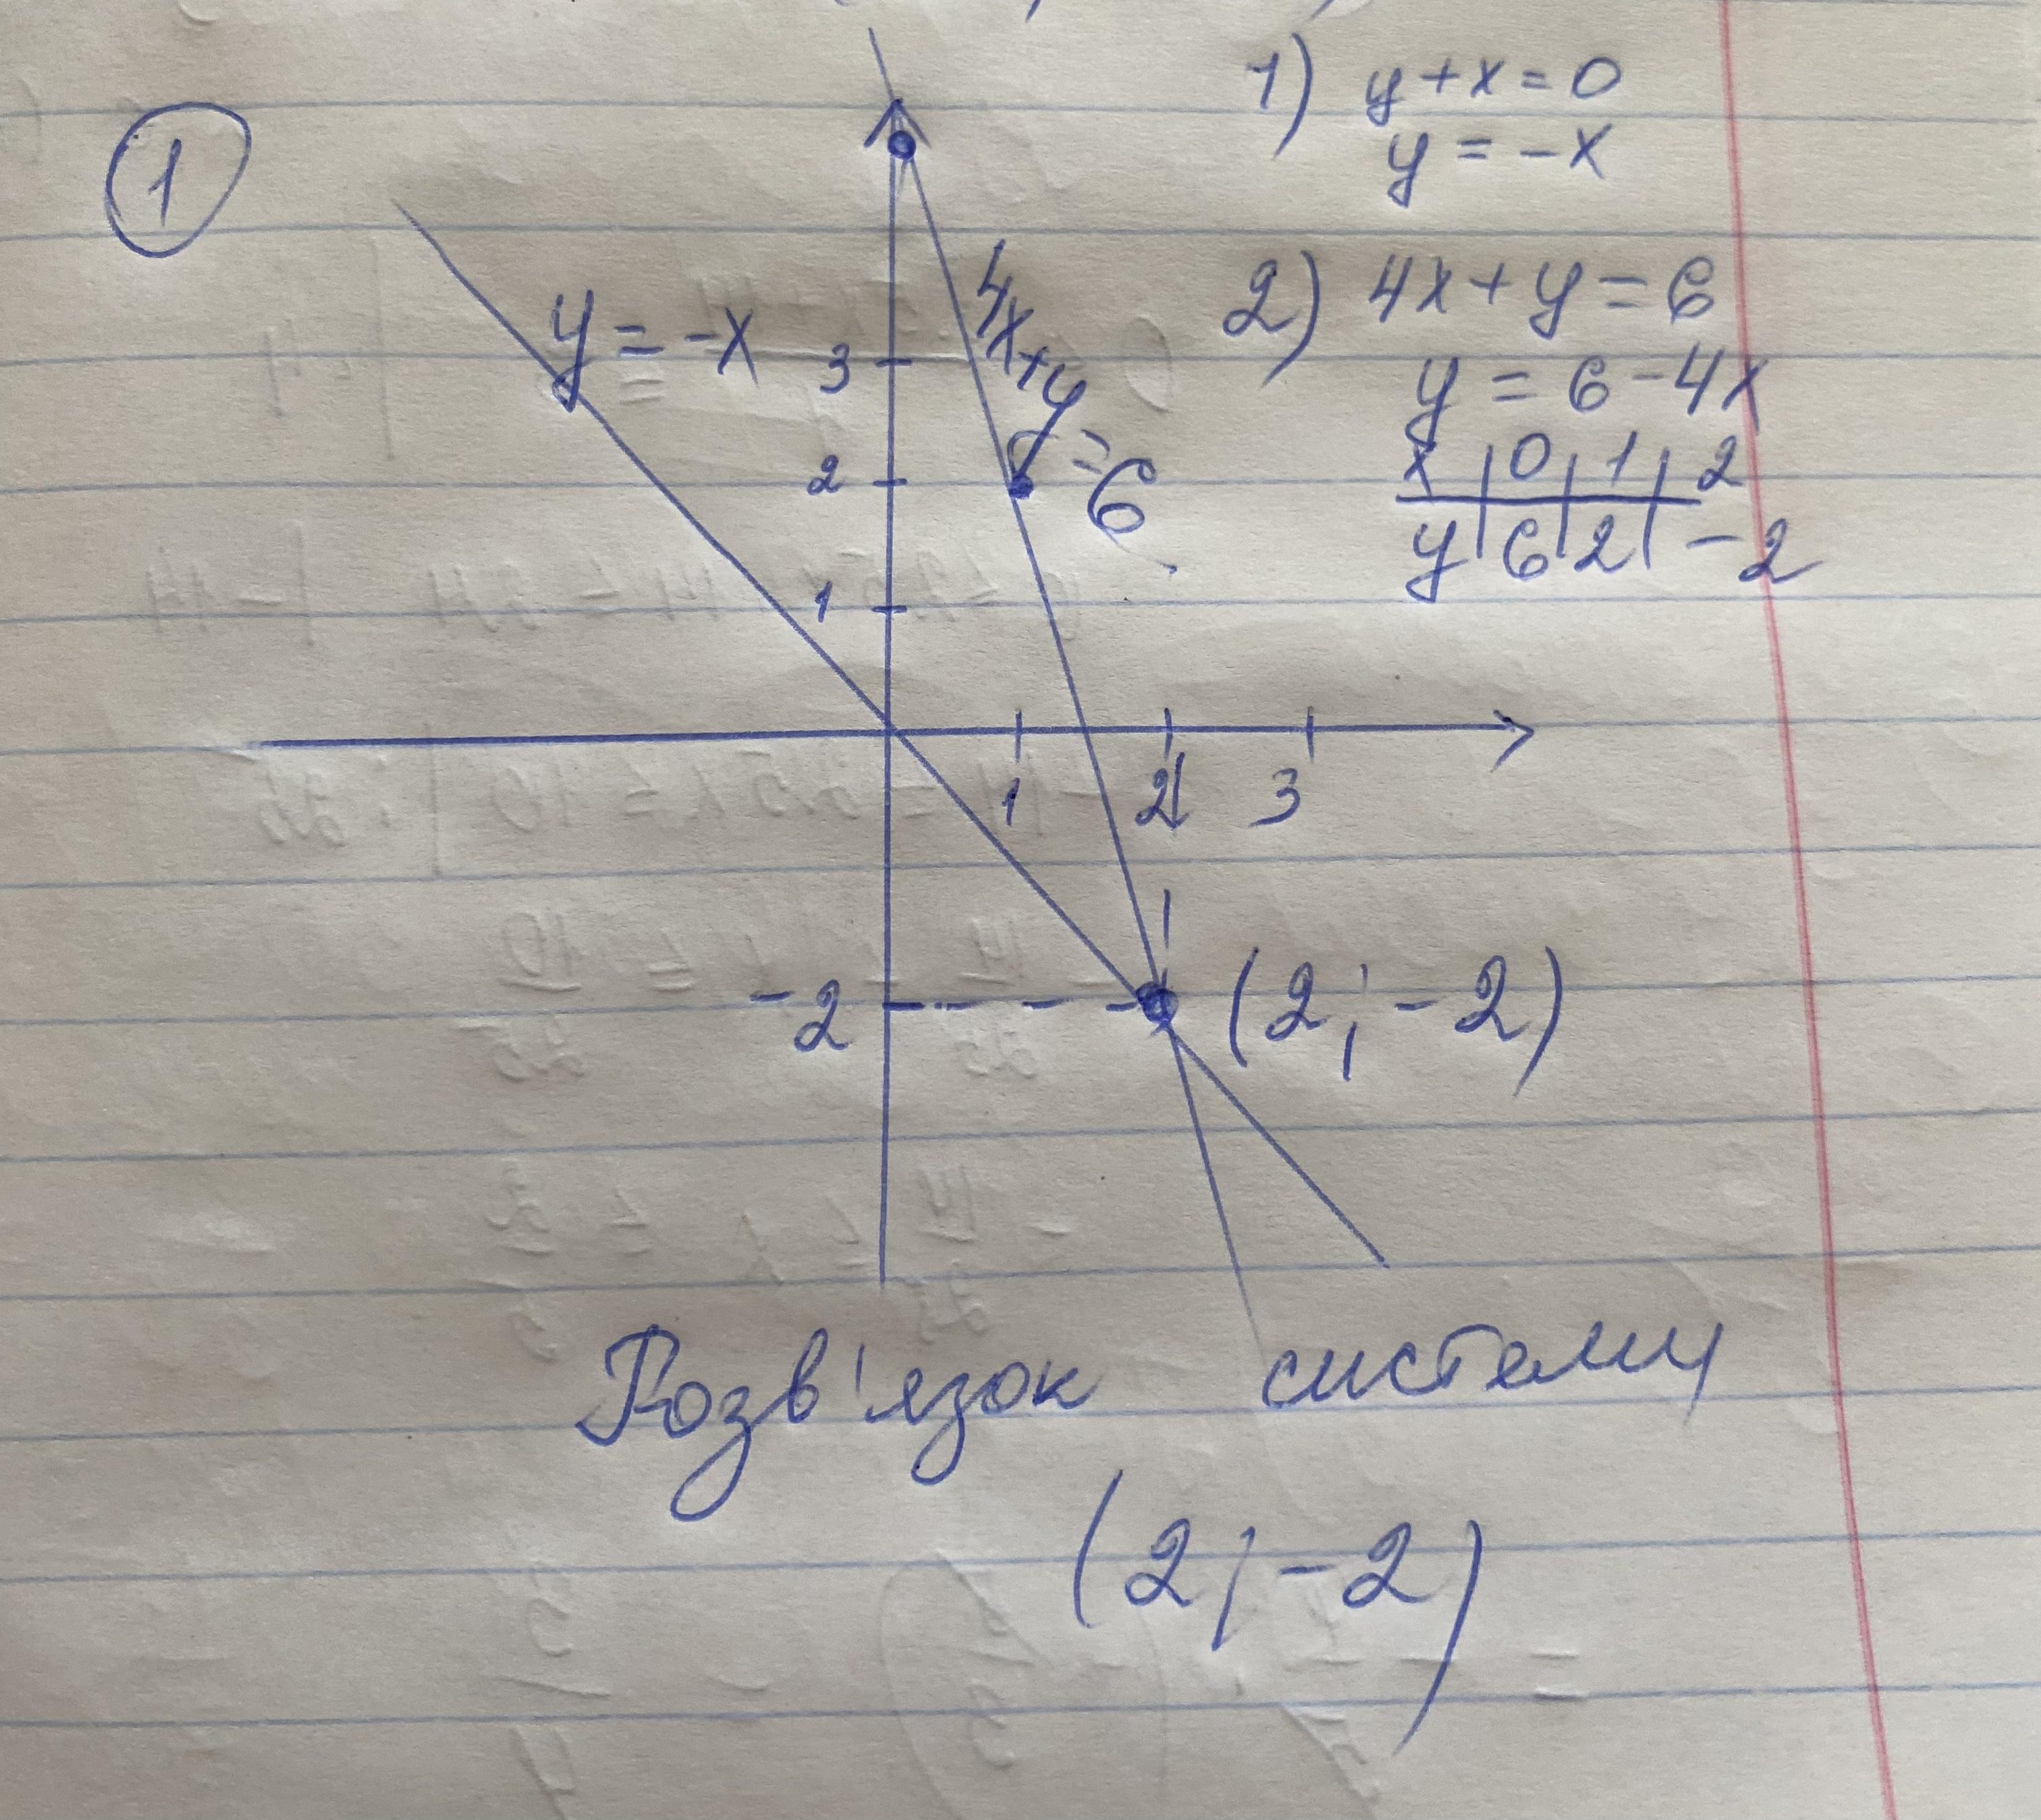 1
1) y+x=0
y = -x
2) 4x+y=6
y = 6-4x
x | 0 | 1 | 2
y | 6 | 2 | -2
y = -x
4x+y=6
3
2
1
1 2 3
-2
(2; -2)
Розв'язок системи
(2; -2)